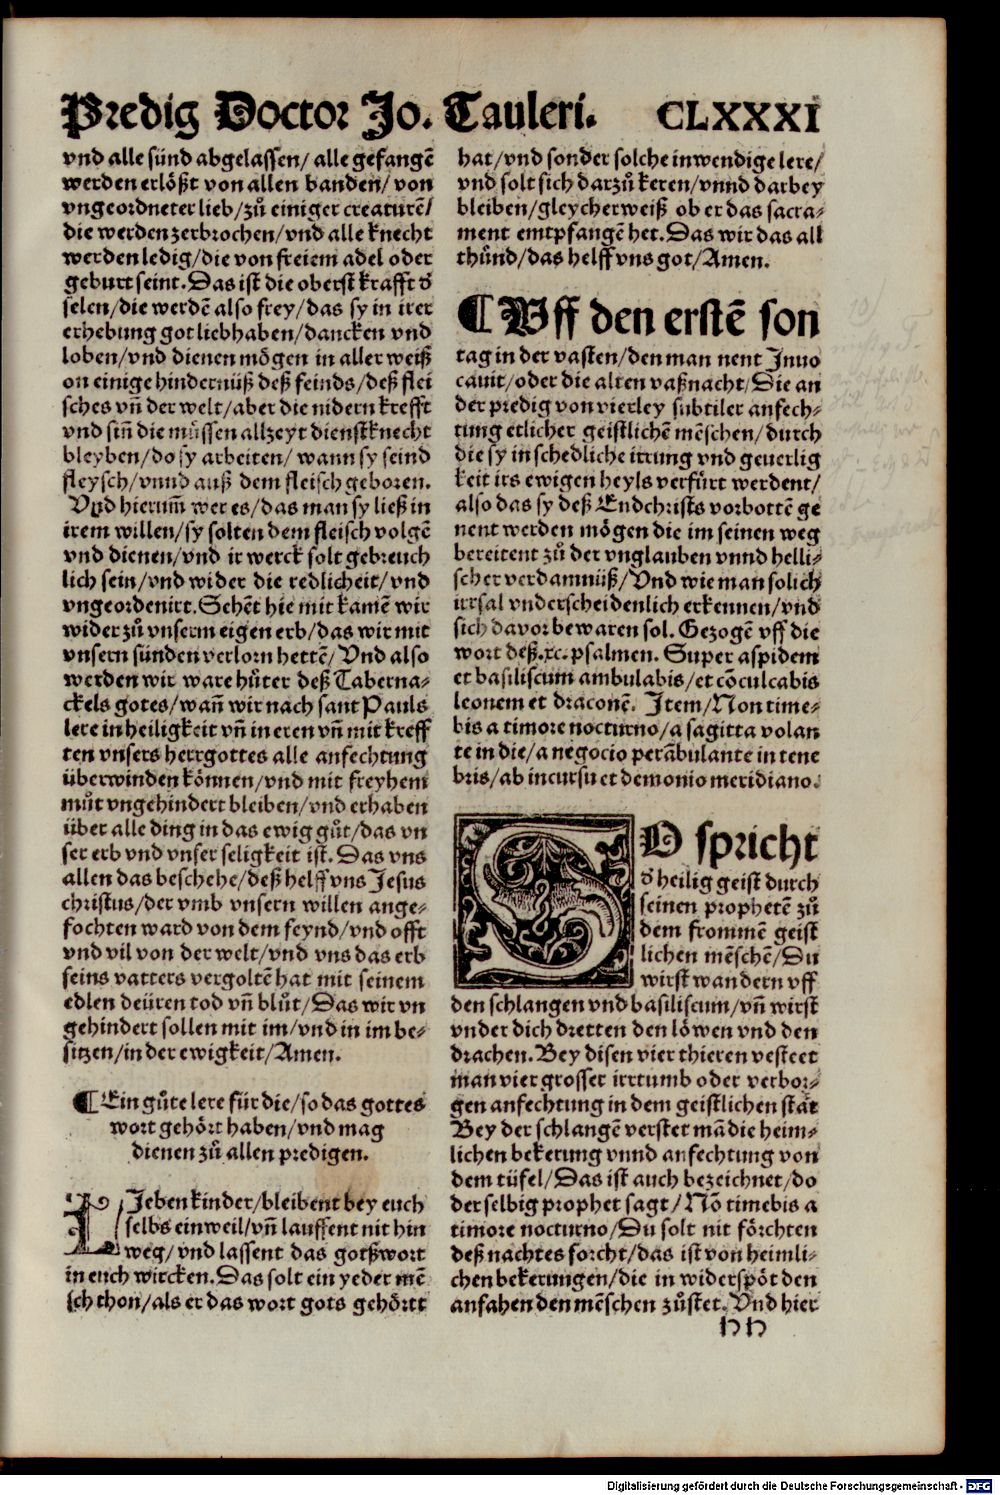 Predig Doctor Jo. Tauleri. CLXXXI
vnd alle sünd abgelassen/ alle gefangē
werden erlößt von allen banden/ von
vngeordneter lieb/zů einiger creaturē/
die werden zerbrochen/vnd alle knecht
werden ledig/die von freiem adel oder
geburt seint. Das ist die oberst krafft d̕
selen/die werdē also frey/das sy in irer
erhebung got liebhaben/dancken vnd
loben/vnd dienen mögen in aller weiß
on einige hindernüß deß feinds/deß flei
sches vn̄ der welt/aber die nidern krefft
vnd sin̄ die müssen allzeyt dienstknecht
bleyben/do sy arbeiten/ wann sy seind
fleysch/vnnd auß dem fleisch geboren.
Vnd hierum̄ wer es/das man sy ließ in
irem willen/sy solten dem fleisch volgē
vnd dienen/vnd ir werck solt gebreuch
lich sein/vnd wider die redlicheit/vnd
vngeordenirt. Sehēt hie mit kamē wir
wider zů vnserm eigen erb/das wir mit
vnsern sünden verlorn hettē/ Vnd also
werden wir ware hüter deß Taberna-
ckels gotes/wan̄ wir nach sant Pauls
lere in heiligkeit vn̄ in eren vn̄ mit kreff
ten vnsers herrgottes alle anfechtung
überwinden können/vnd mit freyhem
můt vngehindert bleiben/vnd erhaben
über alle ding in das ewig gůt/das vn
ser erb vnd vnser seligkeit ist. Das vns
allen das beschehe/deß helff vns Jesus
christus/der vmb vnsern willen ange-
fochten ward von dem feynd/vnd offt
vnd vil von der welt/vnd vns das erb
seins vatters vergoltē hat mit seinem
edlen deüren tod vn̄ blůt/Das wir vn
gehindert sollen mit im/vnd in im be-
sitzen/in der ewigkeit/Amen.
¶ Ein gůte lere für die/so das gottes
wort gehört haben/vnd mag
dienen zů allen predigen.
LJeben kinder/bleibent bey euch
selbs ein weil/vn̄ lauffent nit hin
weg/ vnd lassent das gotßwort
in euch wircken. Das solt ein yeder mē
sch thon/als er das wort gots gehörtt
hat/vnd sonder solche inwendige lere/
vnd solt sich darzů keren/vnnd darbey
bleiben/gleycherweiß ob er das sacra-
ment emtpfangē het. Das wir das all
thünd/das helff vns got/Amen.
¶ Vff den erstē son
tag in der vasten/den man nent Inuo
cauit/oder die alten vaßnacht/Die an
der predig von vierley subtiler anfech-
tung etlicher geistlichē mēschen/durch
die sy in schedliche irrung vnd geuerlig
keit irs ewigen heyls verfürt werdent/
also das sy deß Endchrists vorbottē ge
nent werden mögen die im seinen weg
bereitent zů der vnglauben vnnd helli-
scher verdamnüß/Vnd wie man solich
irrsal vnderscheidenlich erkennen/vnd
sich davor bewaren sol. Gezogē vff die
wort deß.xc.psalmen. Super aspidem
et basiliscum ambulabis/et cōculcabis
leonem et draconē. Item/Non time-
bis a timore nocturno/a sagitta volan
te in die/a negocio perābulante in tene
bris/ab incursu et demonio meridiano.
SO spricht
d̕ heilig geist durch
seinen prophetē zů
dem frommē geist
lichen mēschē/Du
wirst wandern vff
den schlangen vnd basiliscum/vn̄ wirst
vnder dich dretten den löwen vnd den
drachen. Bey disen vier thieren vesteet
man vier grosser irrtumb oder verbor-
gen anfechtung in dem geistlichen stät
Bey der schlangē verstet mā die heim-
lichen bekerung vnnd anfechtung von
dem tüfel/Das ist auch bezeichnet/do
der selbig prophet sagt/Nō timebis a
timore nocturno/Du solt nit förchten
deß nachtes forcht/das ist von heimli-
chen bekerungen/die in widerspöt den
anfahenden mēschen zůstet. Vnd hier
hh
Digitalisierung gefördert durch die Deutsche Forschungsgemeinschaft - DFG